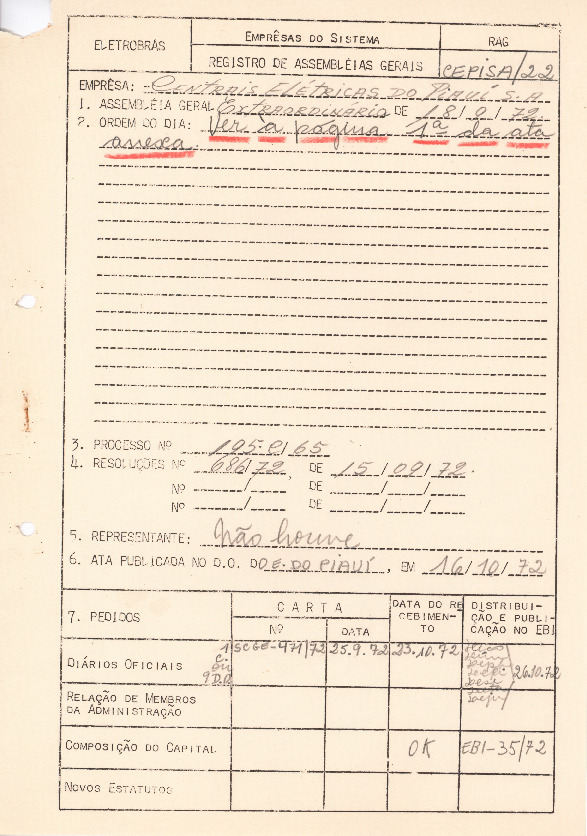 ELETROBRÁS
EMPRÊSAS DO SISTEMA
REGISTRO DE ASSEMBLÉIAS GERAIS
RAG
CEPISA/22
EMPRÊSA: CENTRAIS ELÉTRICAS DO PIAUÍ S.A
1. ASSEMBLÉIA GERAL Extraordinária DE 18/ /72
2. ORDEM DO DIA: Ver à página 1ª da ata
anexa.
3. PROCESSO Nº 195 /65
4. RESOLUÇÕES Nº 686/72, DE 15/09/72.
Nº / DE / /
Nº / DE / /
5. REPRESENTANTE: Não houve
6. ATA PUBLICADA NO D.O. DO E. DO PIAUÍ, EM 16/10/72
7. PEDIDOS
CARTA
Nº
DATA
DATA DO RE
CEBIMEN-
TO
DISTRIBUI-
ÇÃO E PUBLI-
CAÇÃO NO EBI
DIÁRIOS OFICIAIS
SCGE-471/72
25.9.72
23.10.72
26.10.72
RELAÇÃO DE MEMBROS
DA ADMINISTRAÇÃO
COMPOSIÇÃO DO CAPITAL
OK
EBI-35/72
NOVOS ESTATUTOS